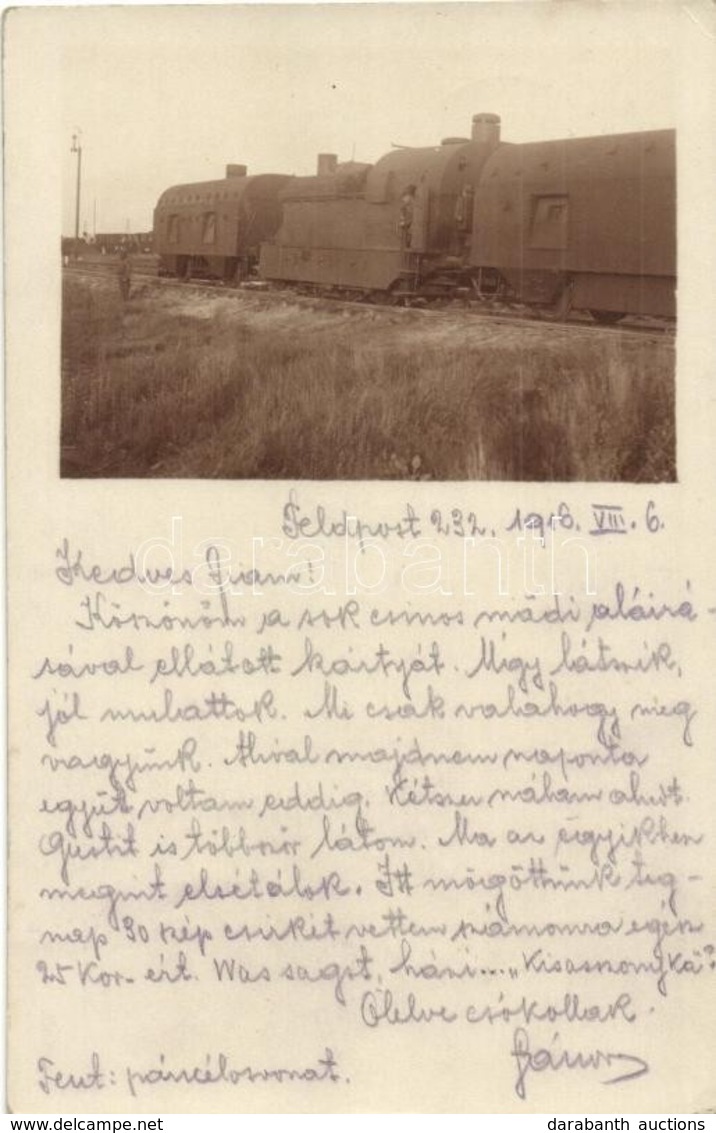 Feldpost 232. 1918. VIII. 6.
Kedves fiam!
Köszönöm a sok csinos mádi aláirá-
sával ellátott kártyát. Úgy látszik,
jól mulattok. Mi csak valahogy meg
vagyunk. majdnem naponta
együtt voltam eddig. Kétszer nálam aludt.
Gustit is többször látom. Ma az egyikhez
megint elsétálok. Itt mögöttünk teg-
nap 30 szép csirkét vettem számomra egész
25 Kor.-ért. Was sagst, házi...."Kisasszonyka"?
Ölelve csókollak.
Fent: páncélosvonat.
darabanth
© darabanth
www.delcampe.net
darabanth auctions